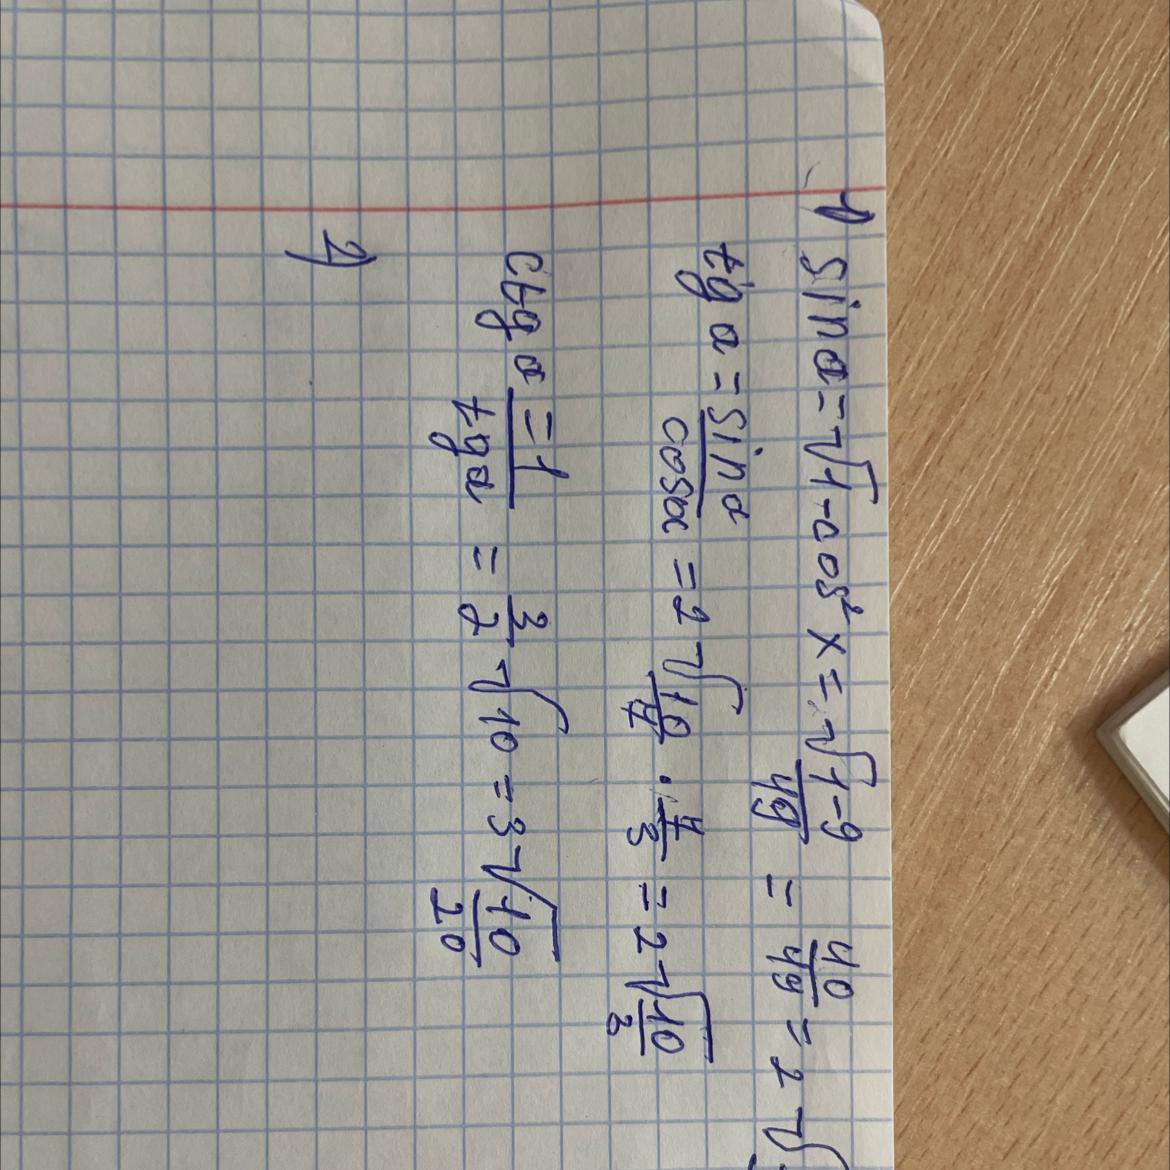 1) sin α = √1 - cos² x = √1 - 9/49 = 40/49 = 2√
tg α = sin α/cos α = 2√10/7 · 7/3 = 2√10/3
ctg α = 1/tg α = 3/2√10 = 3√10/20
2)